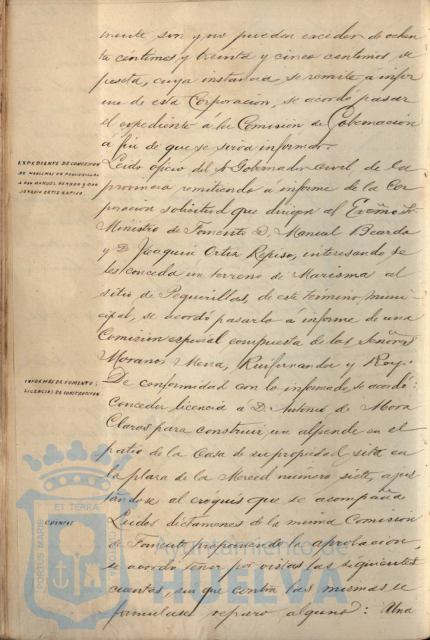 mente son y no pueden exceder de ochen
ta céntimos y treinta y cinco centimos de
peseta, cuya instancia se remite a infor
me de esta Corporacion, se acordó pasar
el expediente á la Comision de Gobernacion
a fin de que se sirva informar.
EXPEDIENTE DE CONCESION
DE MARISMAS EN PEGUERILLAS
A DON MANUEL BEARDO Y DON
JOAQUIN ORTIZ RAPISO.
Leido oficio del Sr Gobernador Civil de la
provincia remitiendo a informe de la Cor
poracion solicitud que dirigen al Excmo Sr
Ministro de Fomento D. Manuel Beardo
y D. Joaquin Ortiz Repiso, interesando se
les conceda un terreno de Marisma al
sitio de Peguerillas, de este termino muni
cipal, se acordó pasarlo á informe de una
Comision especial compuesta de los Señores
Morano, Mora, Ruifernandez y Roy.
INFORMES DE FOMENTO:
LICENCIAS DE CONSTRUCCION
De conformidad con lo informado se acordó:
Conceder licencia á D. Antonio de Mora
Claros para construir un alpende en el
patio de la Casa de su propiedad sita en
la plaza de la Merced número siete, ajus
tándose al croquis que se acompaña
CUENTAS
Leidos dictámenes de la misma Comision
de Fomento proponiendo la aprobacion,
se acordó tener por vistas las siguientes
cuentas, sin que contra las mismas se
formulase reparo alguno: Una
PORTUS MARIS ET TERRAE
Ayuntamiento de
HUELVA